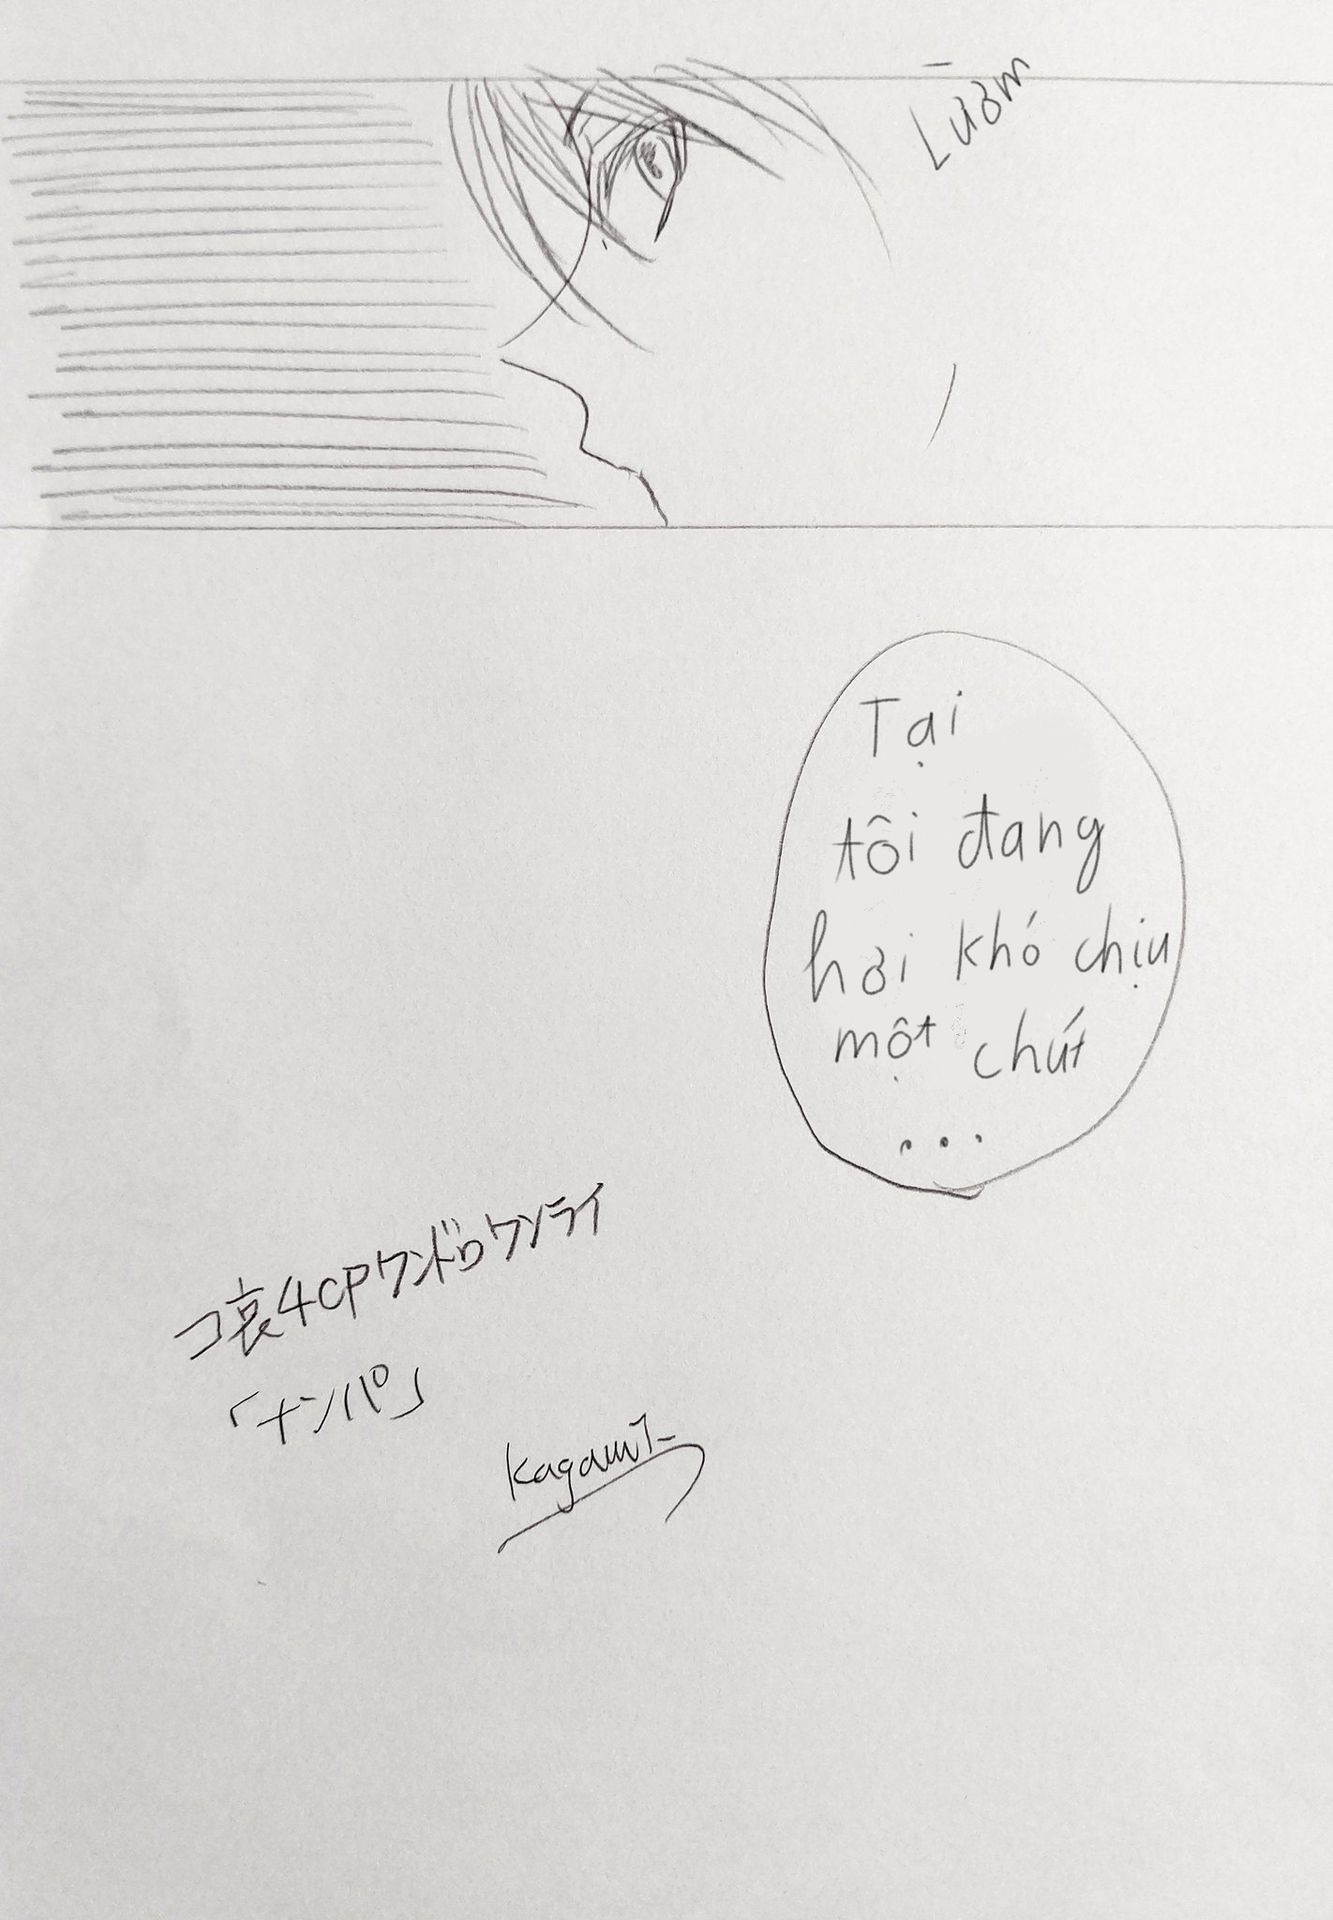 Lườm
Tại
tôi đang
hơi khó chịu
một chút
...
コ哀4CPワンドロワンライ
「ナンパ」
Kagami